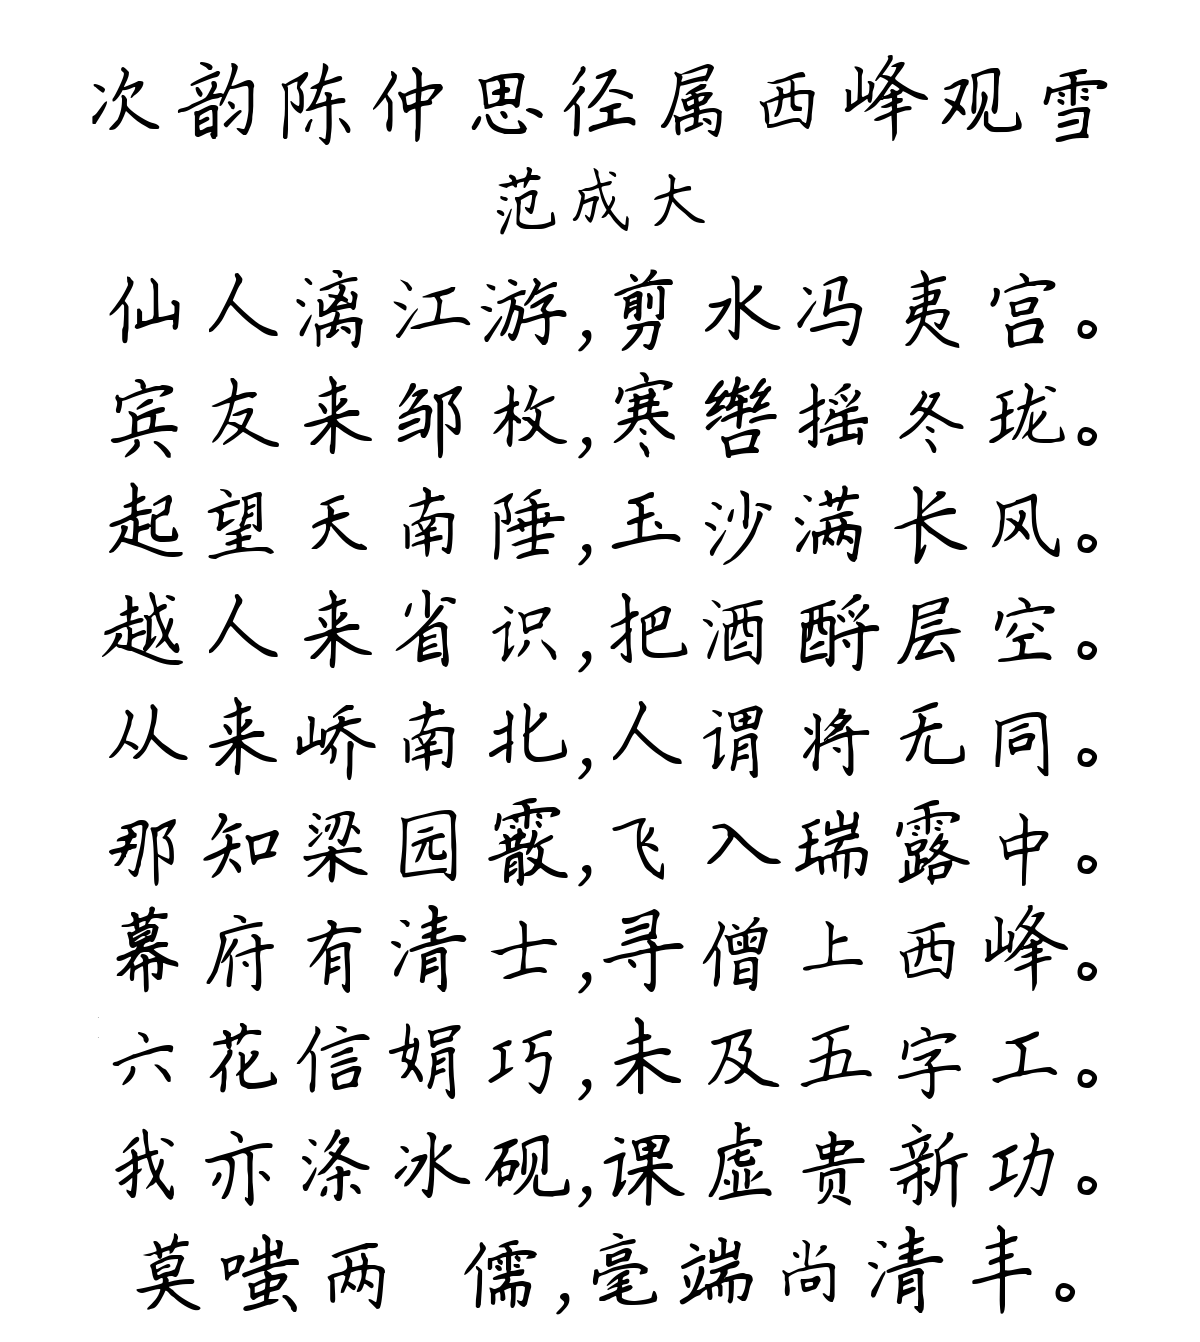 次韵陈仲思径属西峰观雪
范成大
仙人漓江游,剪水冯夷宫。
宾友来邹枚,寒辔摇冬珑。
起望天南陲,玉沙满长风。
越人来省识,把酒酹层空。
从来峤南北,人谓将无同。
那知梁园霰,飞入瑞露中。
幕府有清士,寻僧上西峰。
六花信娟巧,未及五字工。
我亦涤冰砚,课虚贵新功。
莫嗤两 儒,毫端尚清丰。